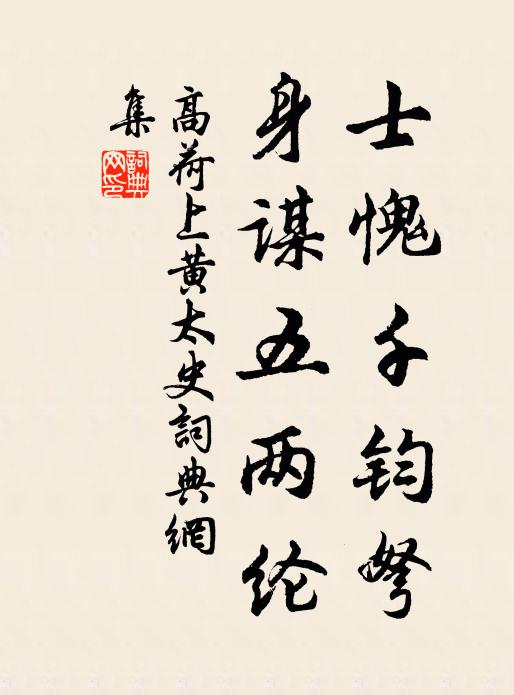 士愧千钧弩
身谋五两纶
高荷上黄太史詞典網
集
詞典
网印